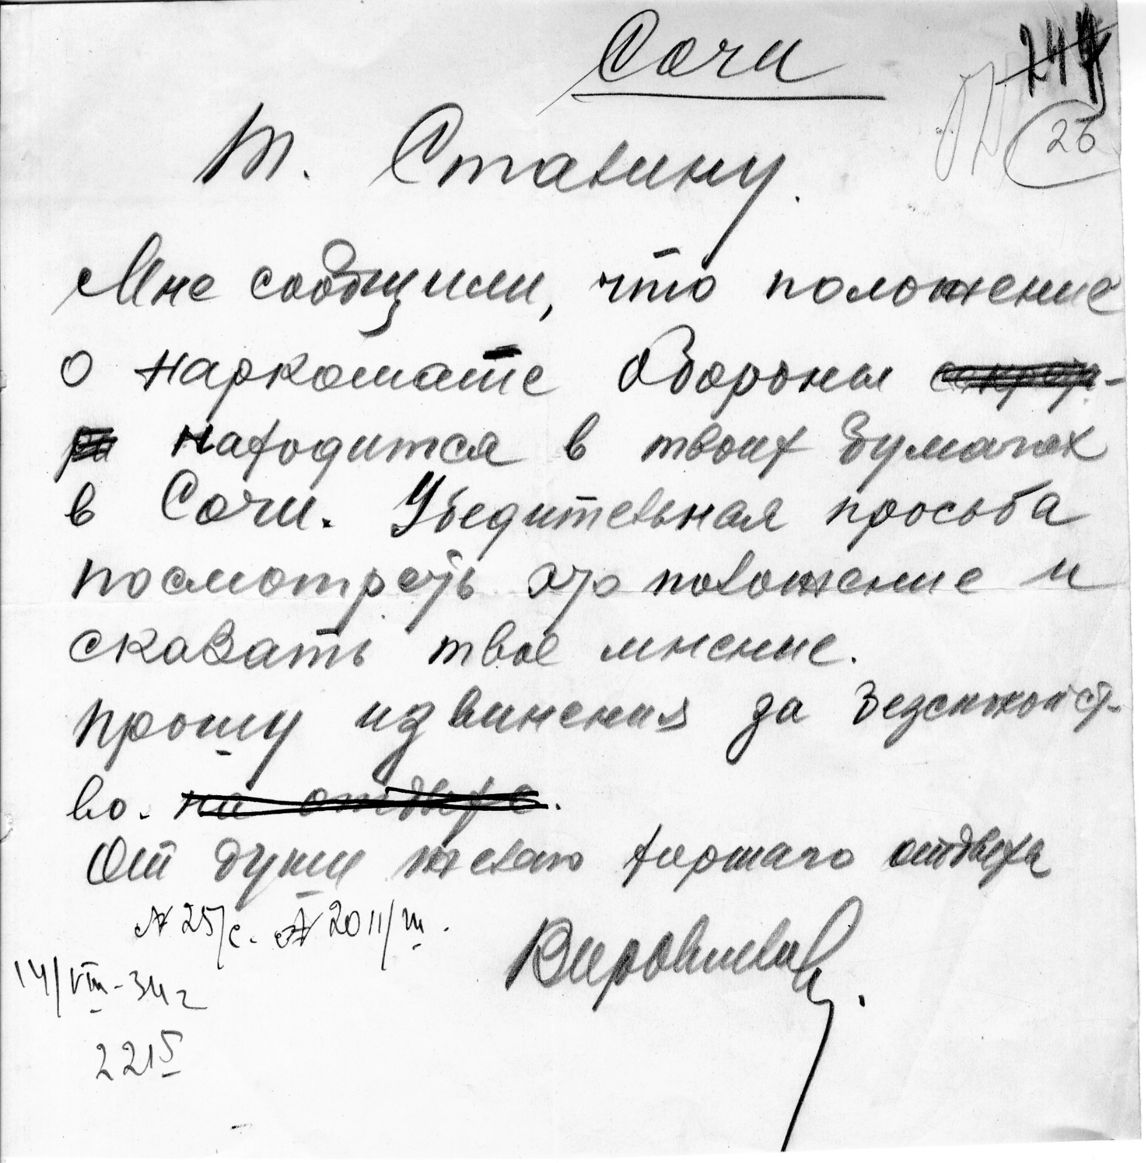 Сочи
247
26
Т. Сталину.
Мне сообщили, что положение
о наркомате Обороны
находится в твоих бумагах
в Сочи. Убедительная просьба
посмотреть это положение и
сказать твое мнение.
Прошу извинения за безспокойст-
во. на отдыхе.
От души желаю хорошаго отдыха
№ 25/с. № 2011/ш.
Ворошилов.
14/VIII-34 г
22 15